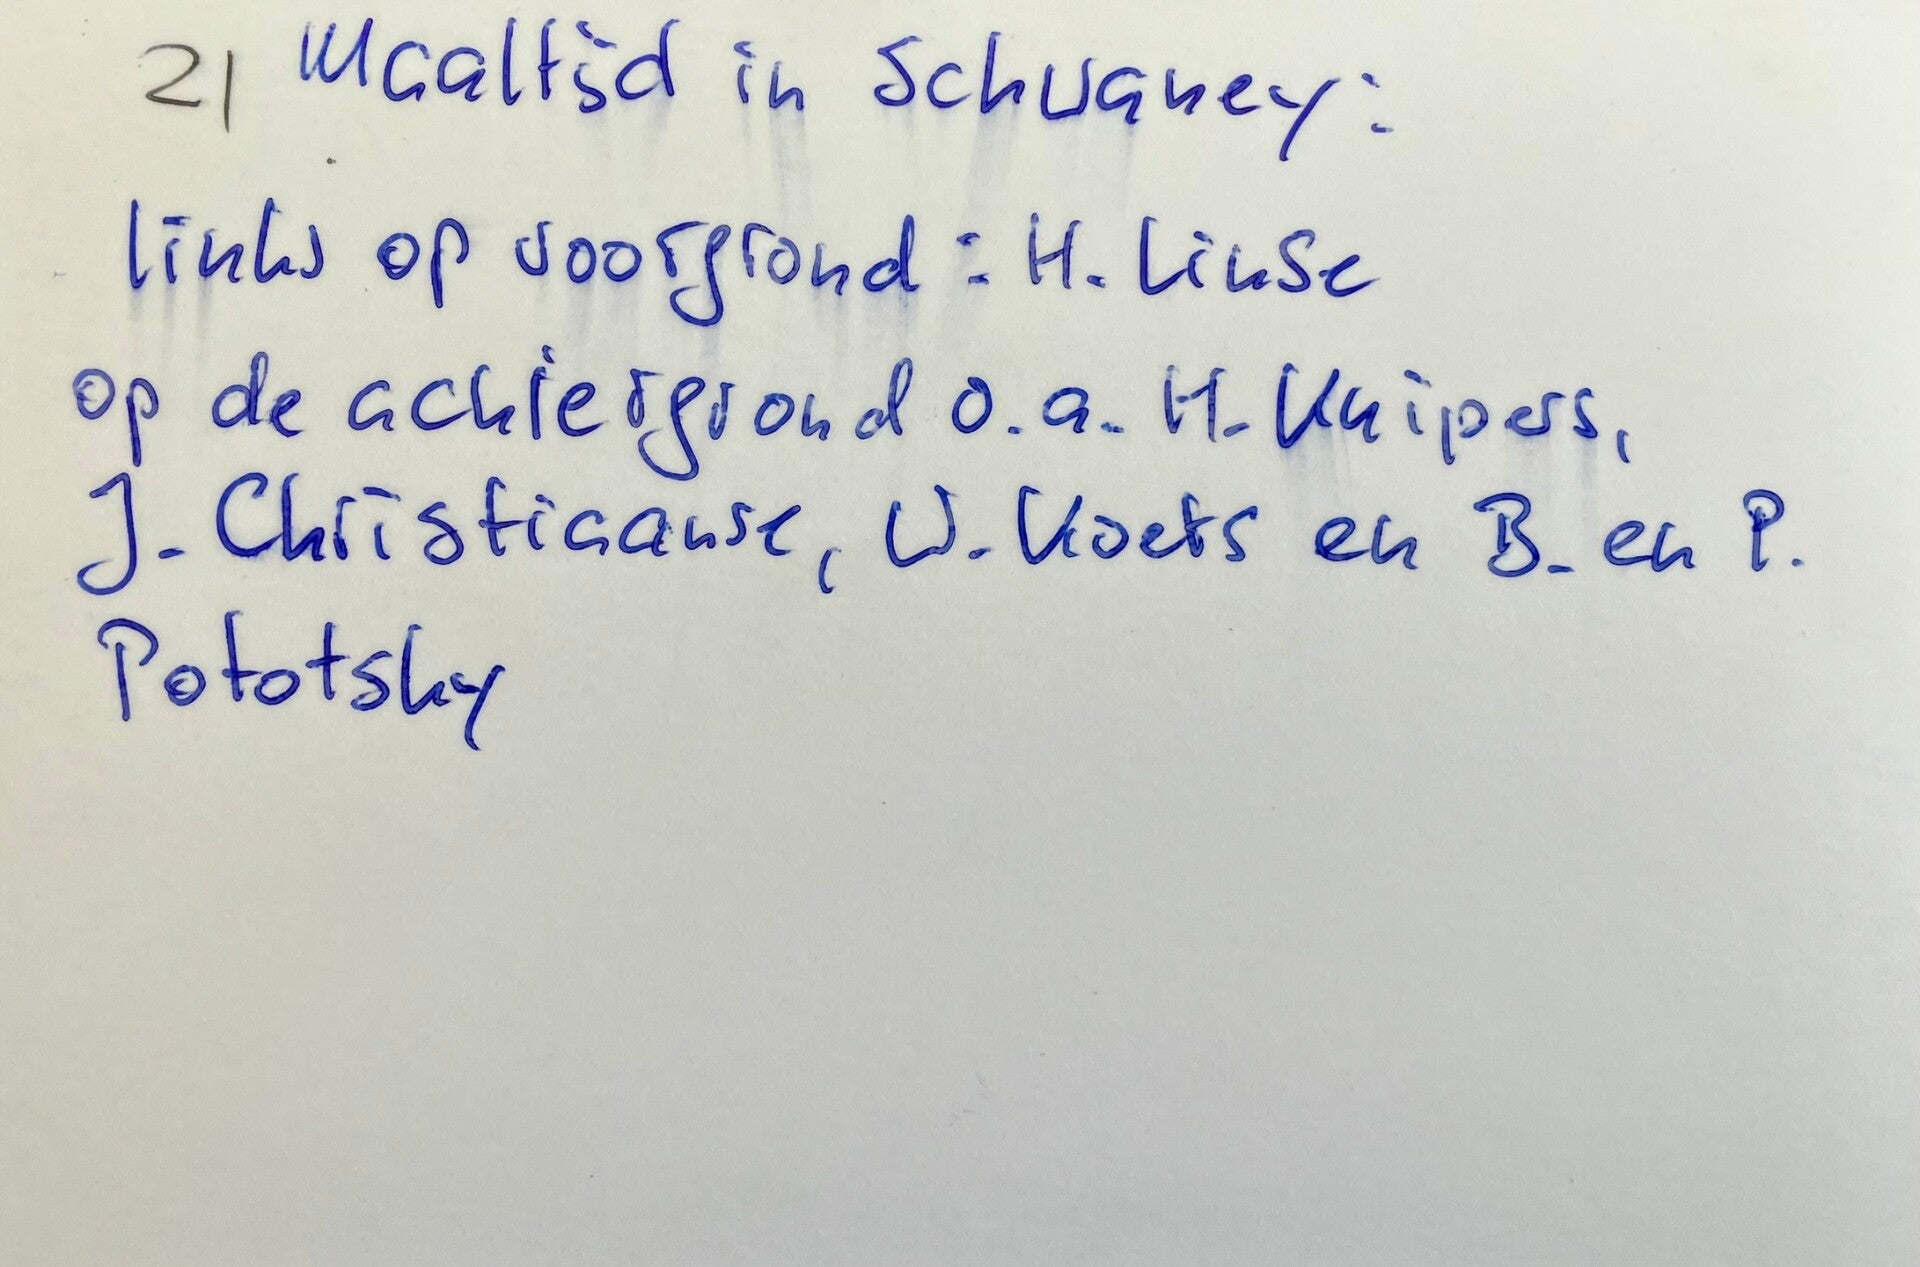 21 Maaltijd in Schwaney:
links op voorgrond : H. Linse
op de achtergrond o.a. H. Knipers,
J. Christiaanse, W. Koets en B. en P.
Pototsky